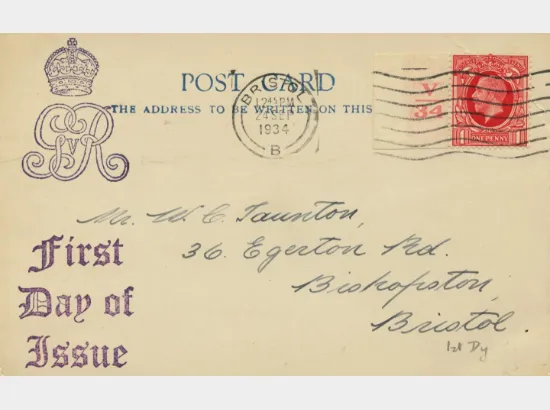 GVR
POST CARD
THE ADDRESS TO BE WRITTEN ON THIS
BRISTOL
24 SEP
1934
B
V
34
ONE PENNY
Mr. W. C. Taunton,
36. Egerton Rd.
Bishopston,
Bristol.
1st Dy
First
Day of
Issue